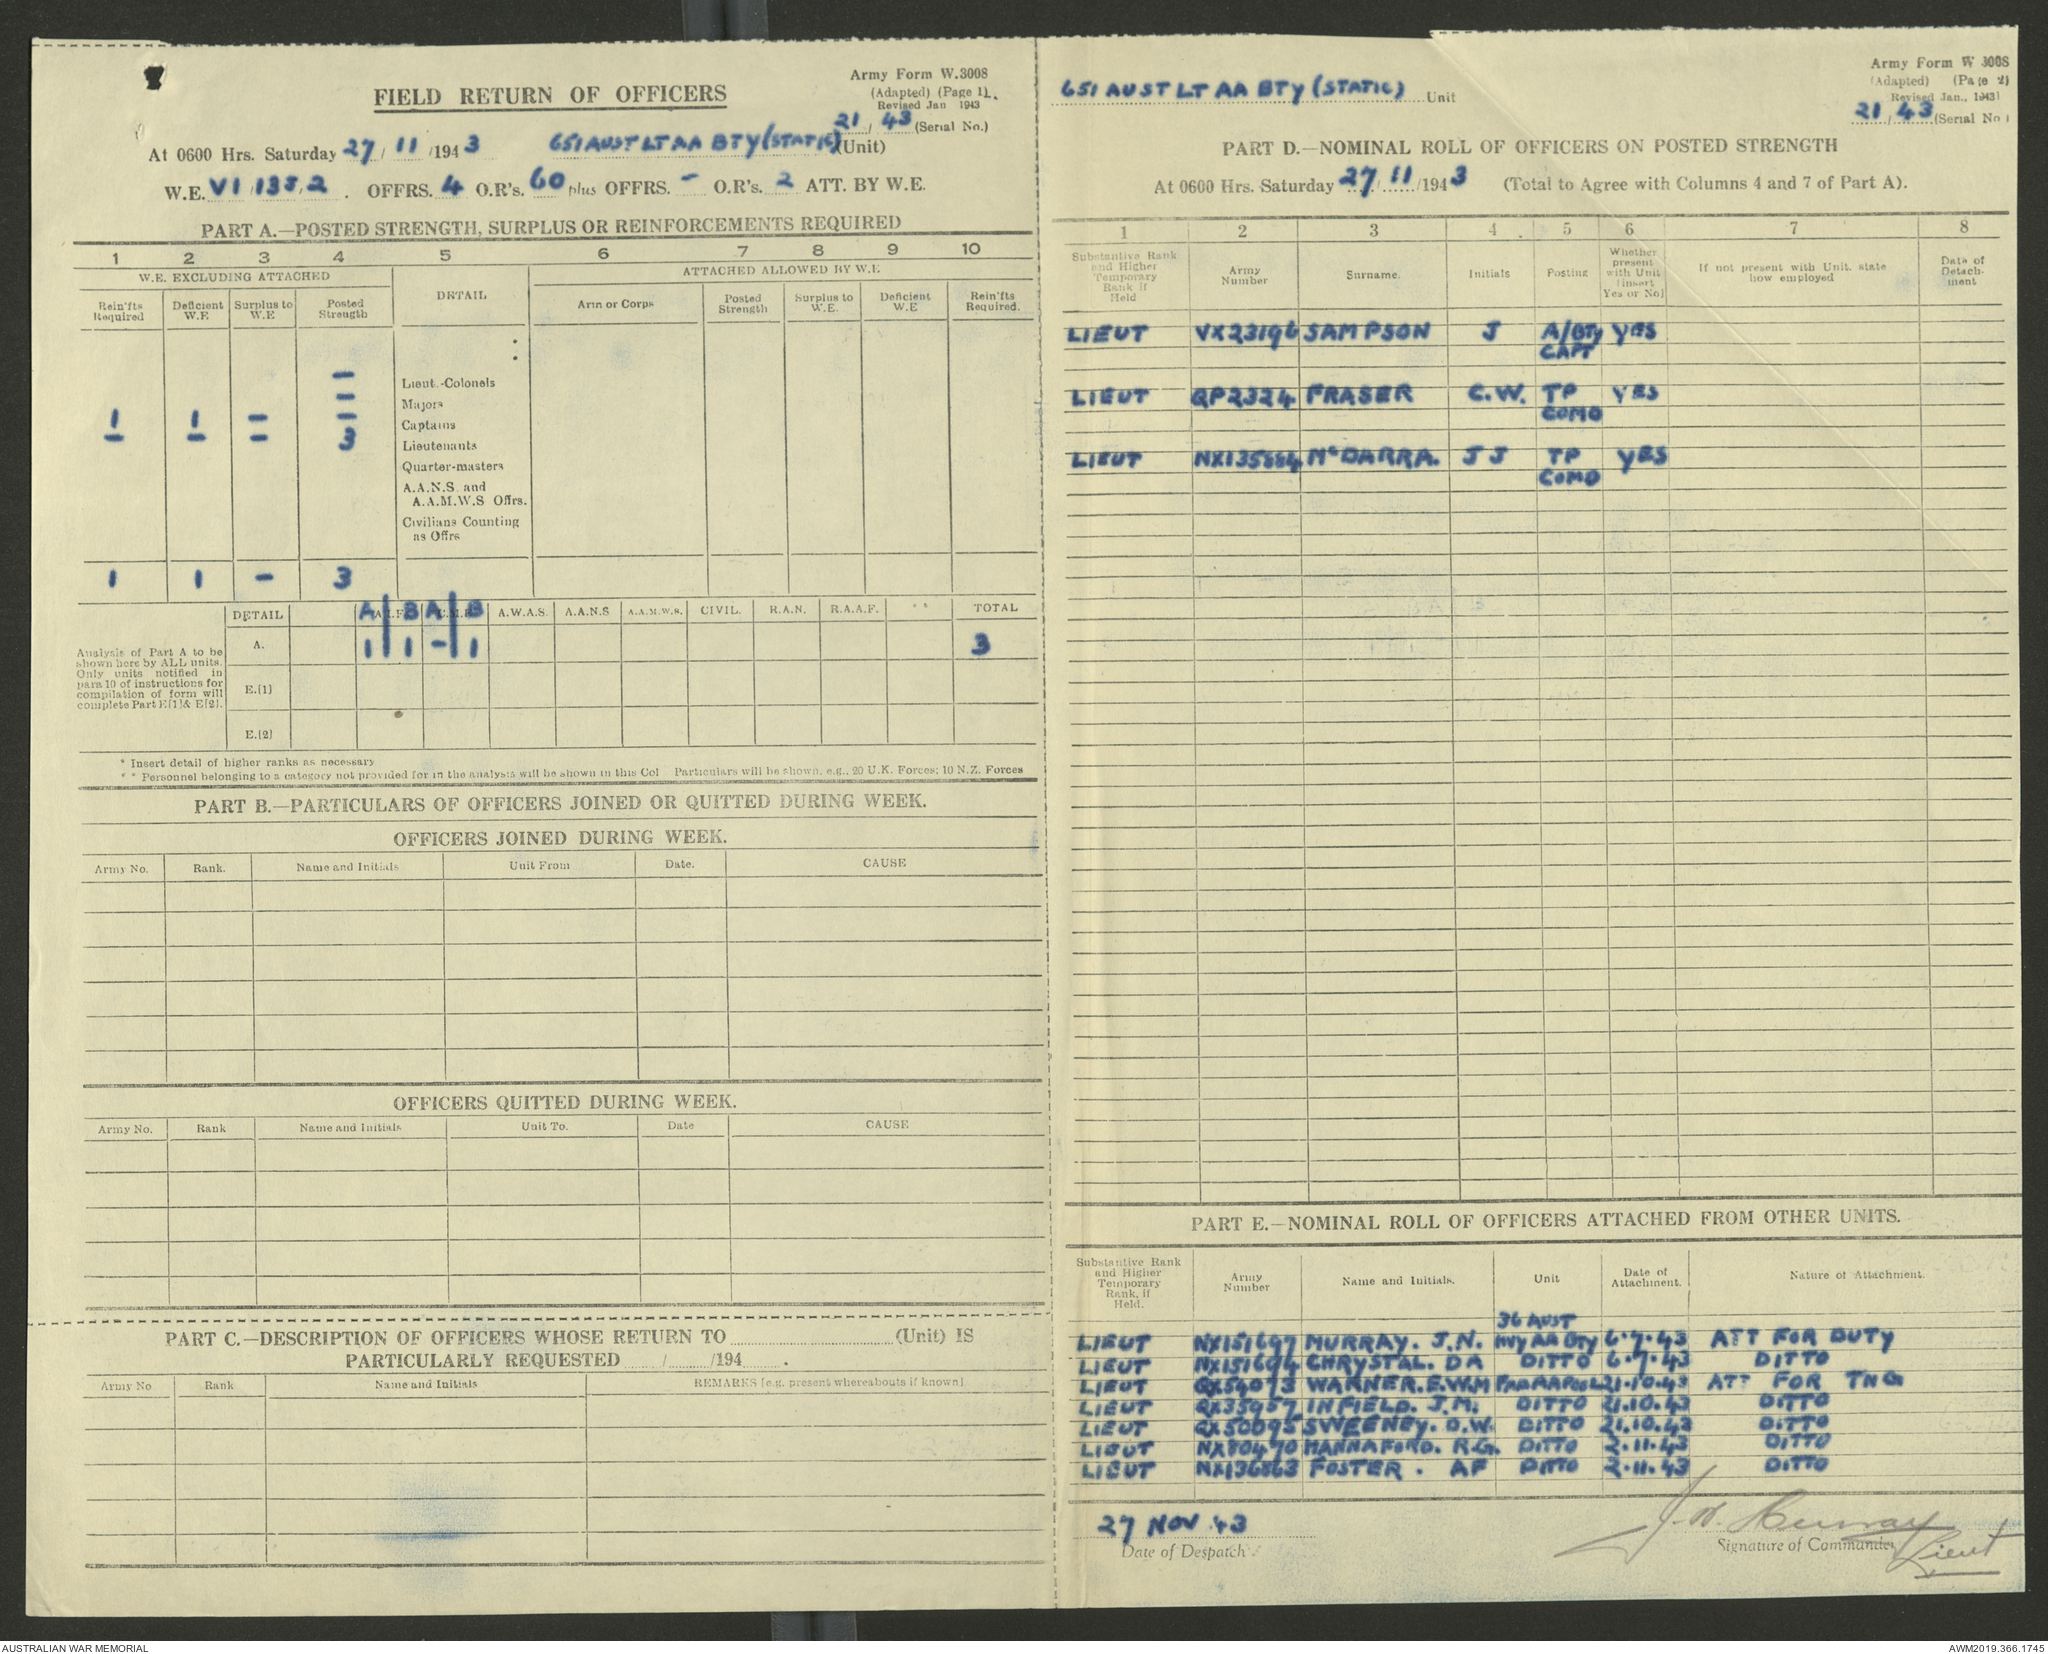 FIELD RETURN OF OFFICERS
Army Form W.3008
(Adapted) (Page 1).
Revised Jan 1943
21 / 43 (Serial No.)
At 0600 Hrs. Saturday 27 / 11 /1943 651 AUST LT AA BTY (STATIC) (Unit)
W.E. VI /138/ 2 . OFFRS. 4 O.R's. 60 plus OFFRS. - O.R's. 2 ATT. BY W.E.
PART A.—POSTED STRENGTH, SURPLUS OR REINFORCEMENTS REQUIRED
1 2 3 4 5 6 7 8 9 10
W.E. EXCLUDING ATTACHED DETAIL ATTACHED ALLOWED BY W.E
Rein'fts Required Deficient W.E Surplus to W.E Posted Strength Arm or Corps Posted Strength Surplus to W.E. Deficient W.E Rein'fts Required.
:
- Lieut.-Colonels
- Majors
1 1 - - Captains
- - - 3 Lieutenants
Quarter-masters
A.A.N.S. and
A.A.M.W.S Offrs.
Civilians Counting
as Offrs
1 1 - 3
DETAIL A | B A | B A.I.F. C.M.F. A.W.A.S. A.A.N.S A.A.M.W.S. CIVIL. R.A.N. R.A.A.F. ** TOTAL
A. 1 | 1 - | 1 3
Analysis of Part A to be
shown here by ALL units.
Only units notified in
para 10 of instructions for
compilation of form will
complete Part E[1]& E[2].
E.[1]
E.[2]
* Insert detail of higher ranks as necessary
* * Personnel belonging to a category not provided for in the analysis will be shown in this Col Particulars will be shown, e.g., 20 U.K. Forces; 10 N.Z. Forces
PART B.—PARTICULARS OF OFFICERS JOINED OR QUITTED DURING WEEK.
OFFICERS JOINED DURING WEEK.
Army No. Rank. Name and Initials Unit From Date. CAUSE
OFFICERS QUITTED DURING WEEK.
Army No. Rank Name and Initials Unit To. Date CAUSE
PART C.—DESCRIPTION OF OFFICERS WHOSE RETURN TO (Unit) IS
PARTICULARLY REQUESTED / /194 .
Army No Rank Name and Initials REMARKS [e.g. present whereabouts if known]
651 AUST LT AA BTY (STATIC) Unit
Army Form W 3008
(Adapted) (Page 2)
Revised Jan., 1943)
21 / 43 (Serial No )
PART D.—NOMINAL ROLL OF OFFICERS ON POSTED STRENGTH
At 0600 Hrs. Saturday 27 / 11 /1943 (Total to Agree with Columns 4 and 7 of Part A).
1 2 3 4 5 6 7 8
Substantive Rank and Higher Temporary Rank if Held Army Number Surname. Initials Posting Whether present with Unit [insert Yes or No] If not present with Unit, state how employed Date of Detach-ment
LIEUT VX23196 SAMPSON J A/BTY CAPT YES
LIEUT QP2324 FRASER C.W. TP COMD YES
LIEUT NX135884 McDARRA. J J TP COMD YES
PART E.—NOMINAL ROLL OF OFFICERS ATTACHED FROM OTHER UNITS.
Substantive Rank and Higher Temporary Rank, if Held. Army Number Name and Initials. Unit Date of Attachment. Nature of Attachment.
36 AUST
LIEUT NX151697 MURRAY. J.N. HVY AA BTY 6.7.43 ATT FOR DUTY
LIEUT NX151694 CHRYSTAL. DA DITTO 6.7.43 DITTO
LIEUT QX54073 WARNER. E.W.M 21.10.43 ATT FOR TNG
LIEUT QX35957 INFIELD. J.M. DITTO 21.10.43 DITTO
LIEUT QX50095 SWEENEY. D.W. DITTO 21.10.43 DITTO
LIEUT NX80470 HANNAFORD. R.G. DITTO 2.11.43 DITTO
LIEUT NX136863 FOSTER. AF DITTO 2.11.43 DITTO
27 NOV 43
Date of Despatch
J.N. Murray Lieut
Signature of Commander
AUSTRALIAN WAR MEMORIAL
AWM2019.366.1745